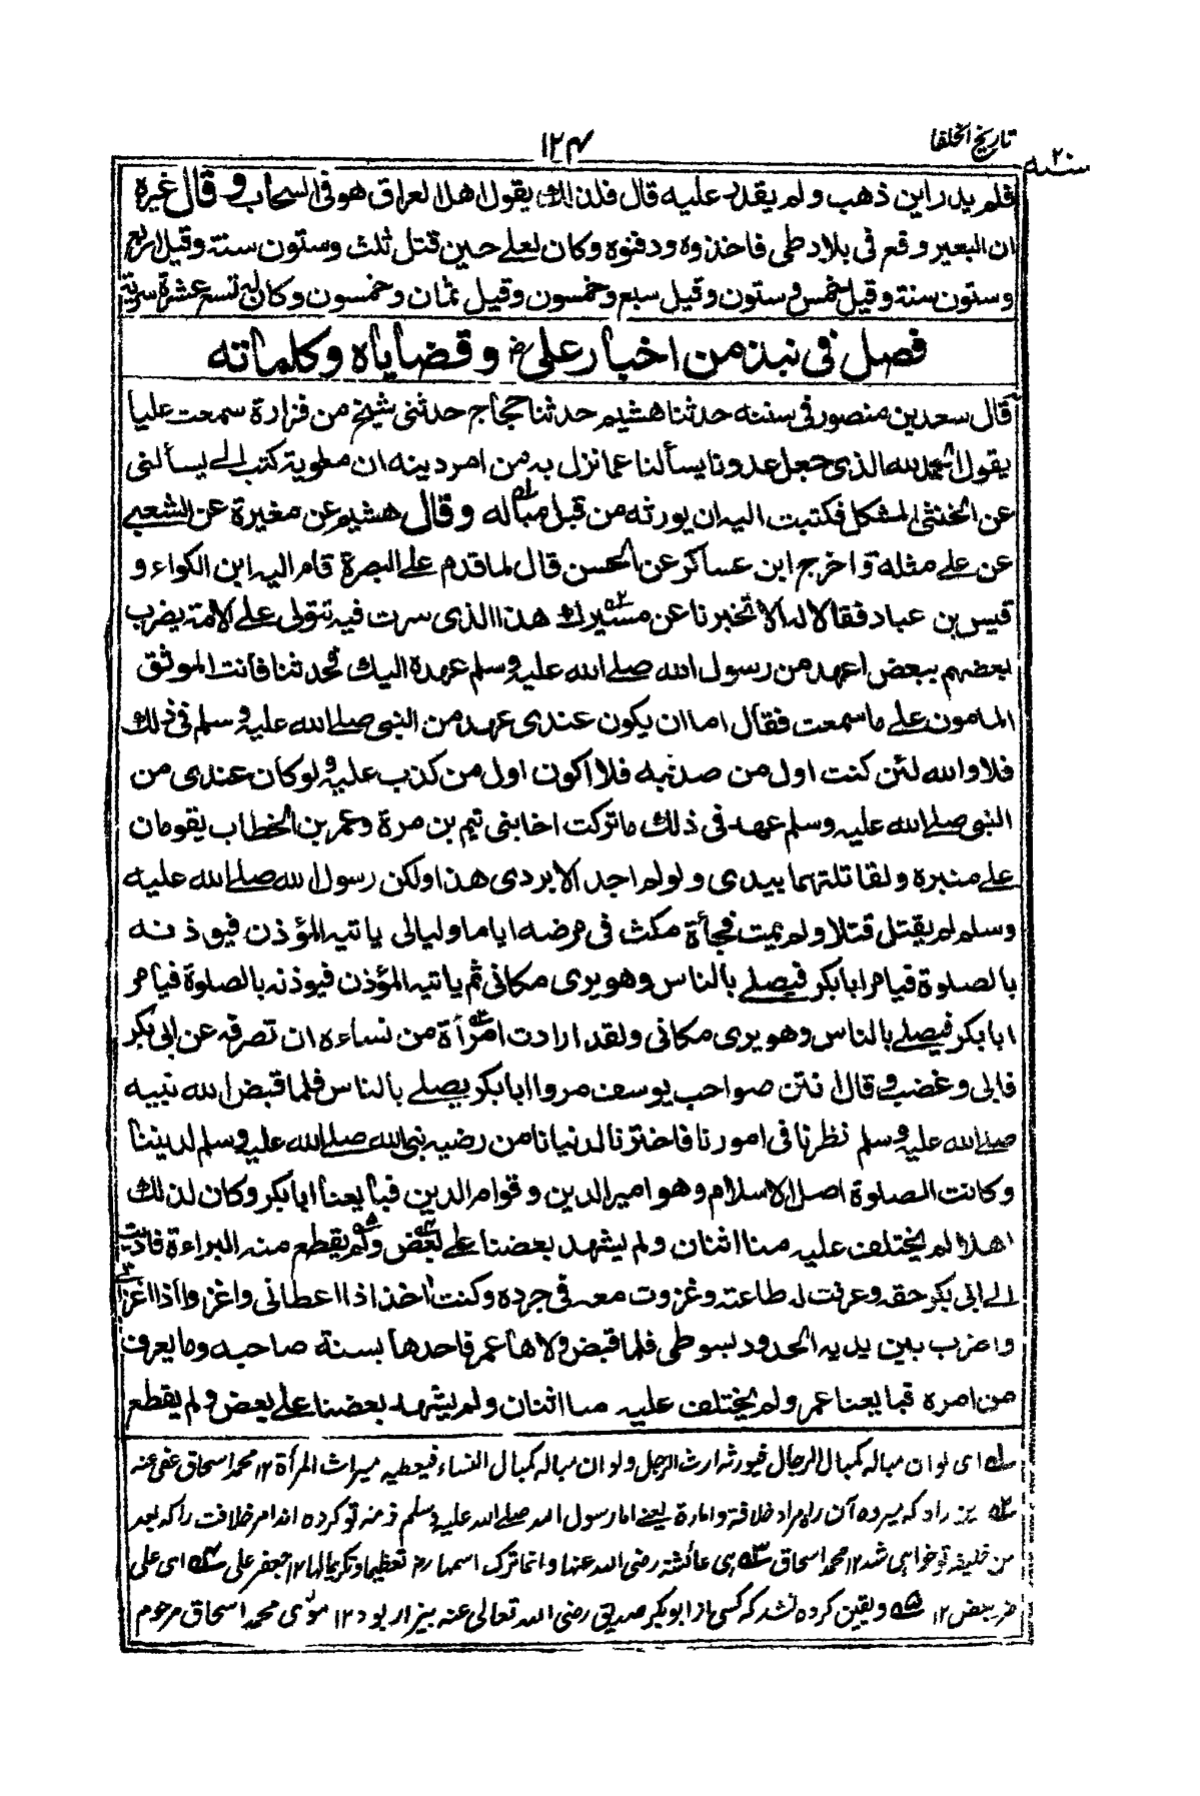 تاريخ الخلفا
١٢٤
سنه ٢٠
فلم يدر اين ذهب ولم يقدر عليه قال فلذلك يقول اهل العراق هو فى السحاب وقال غيره
ان البعير وقع فى بلاد طى فاخذوه ودفنوه وكان لعلى حين قتل ثلث وستون سنة وقيل اربع
وستون سنة وقيل خمس وستون وقيل سبع وخمسون وقيل ثمان وخمسون وكان له تسع عشرة سرية
فصل فى نبذ من اخبار علىؓ وقضاياه وكلماته
قال سعد بن منصور فى سننه حدثنا هشيم حدثنا حجاج حدثنى شيخ من فزارة سمعت عليا
يقول الحمد لله الذى جعل عدونا يسألنا عما نزل به من امر دينه ان معوية كتب الى يسألنى
عن الخنثى المشكل فكتبت اليه ان يورثه من قبل مباله وقال هشيم عن مغيرة عن الشعبى
عن على مثله واخرج ابن عساكر عن الحسن قال لما قدم على البصرة قام اليه ابن الكواء و
قيس بن عباد فقالا له الا تخبرنا عن مسيرك هذا الذى سرت فيه تتولى على الامة يضرب
بعضهم ببعض اعهد من رسول الله صلى الله عليه وسلم عهده اليك فحدثنا فأنت الموثق
المامون على ما سمعت فقال اما ان يكون عندى عهد من النبى صلى الله عليه وسلم فى ذلك
فلا والله لئن كنت اول من صدق به فلا اكون اول من كذب عليه ولو كان عندى من
النبى صلى الله عليه وسلم عهد فى ذلك ما تركت اخا بنى تيم بن مرة وعمر بن الخطاب يقومان
على منبره ولقاتلتهما بيدى ولو لم اجد الا بردى هذا ولكن رسول الله صلى الله عليه
وسلم لم يقتل قتلا ولم يمت فجأة مكث فى مرضه اياما وليالى ياتيه المؤذن فيوذنه
بالصلوة فيامر ابا بكر فيصلى بالناس وهو يرى مكانى ثم ياتيه المؤذن فيوذنه بالصلوة فيامر
ابا بكر فيصلى بالناس وهو يرى مكانى ولقد ارادت امرأة من نساءه ان تصرفه عن ابى بكر
فابى وغضب وقال انتن صواحب يوسف مروا ابا بكر يصلى بالناس فلما قبض الله نبيه
صلى الله عليه وسلم نظرنا فى امورنا فاخترنا لدنيانا من رضيه نبى الله صلى الله عليه وسلم لديننا
وكانت الصلوة اصل الاسلام وهو امير الدين وقوام الدين فبايعنا ابا بكر وكان لذلك
اهلا لم يختلف عليه منا اثنان ولم يشهد بعضنا على بعض ولم يقطع منه البراءة فاديت
الى ابى بكر حقه وعرفت له طاعته وغزوت معه فى جنده وكنت اخذ اذا اعطانى واغزو اذا اغزانى
واضرب بين يديه الحدود بسوطى فلما قبض ولاها عمر فاخذها بسنة صاحبه وما يعرف
من امره فبايعنا عمر ولم يختلف عليه منا اثنان ولم يشهد بعضنا على بعض ولم يقطع
له اى لو ان مباله كمبال الرجال فيورثه ارث الرجل ولو ان مباله كمبال النساء فيعطيه ميراث المرأة ١٢ محمد اسحاق عفى عنه
كه ميرده آن راه مراد خلافة وامارة يعنى اما رسول الله صلى الله عليه وسلم ذمه تو كرده اند امر خلافت را كه بعد
من خليفه تو خواهى شد ١٢ محمد اسحاق ٣ه هى عائشة رضى الله عنها وانما ترك اسمها رض تعظيما وتكريما لها ١٢ جعفر على ٤ه اى على
ضر بعض ١٢ ٥ه ويقين كرده نشد كه كسى از ابوبكر صديق رضى الله تعالى عنه بيزار بود ١٢ مولوى محمد اسحاق مرحوم